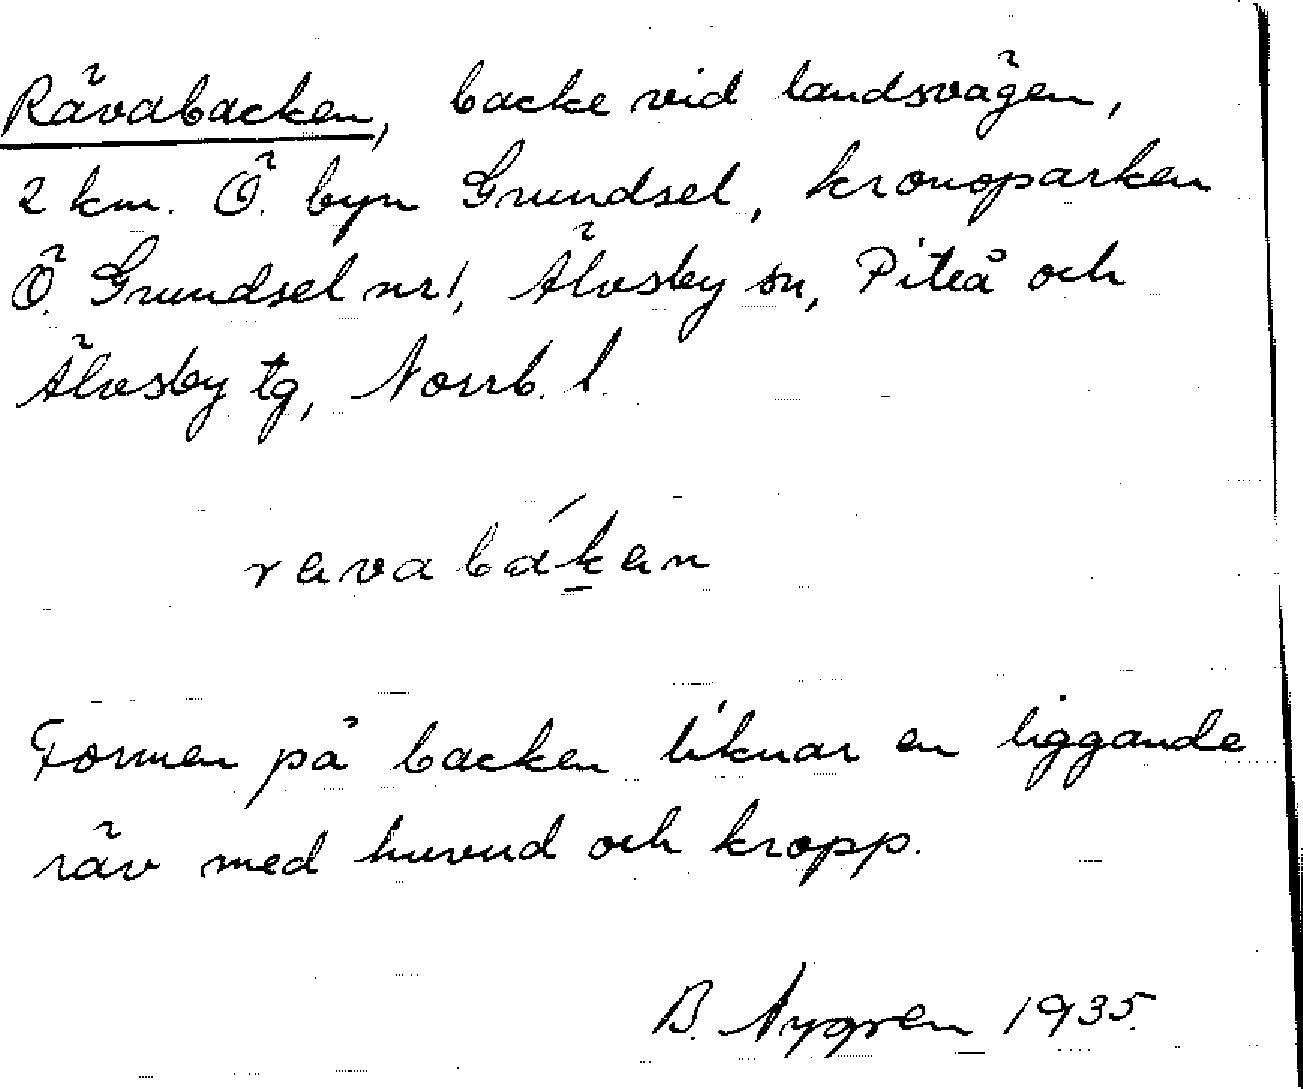 Rävabacken, backe vid landsvägen,
2 km. Ö. byn Grundsel, kronoparken
Ö. Grundsel nr 1, Älvsby sn, Piteå och
Älvsby tg, Norrb. l.
ravabák̠an
Formen på backen liknar en liggande
räv med huvud och kropp.
B. Nygren 1935.